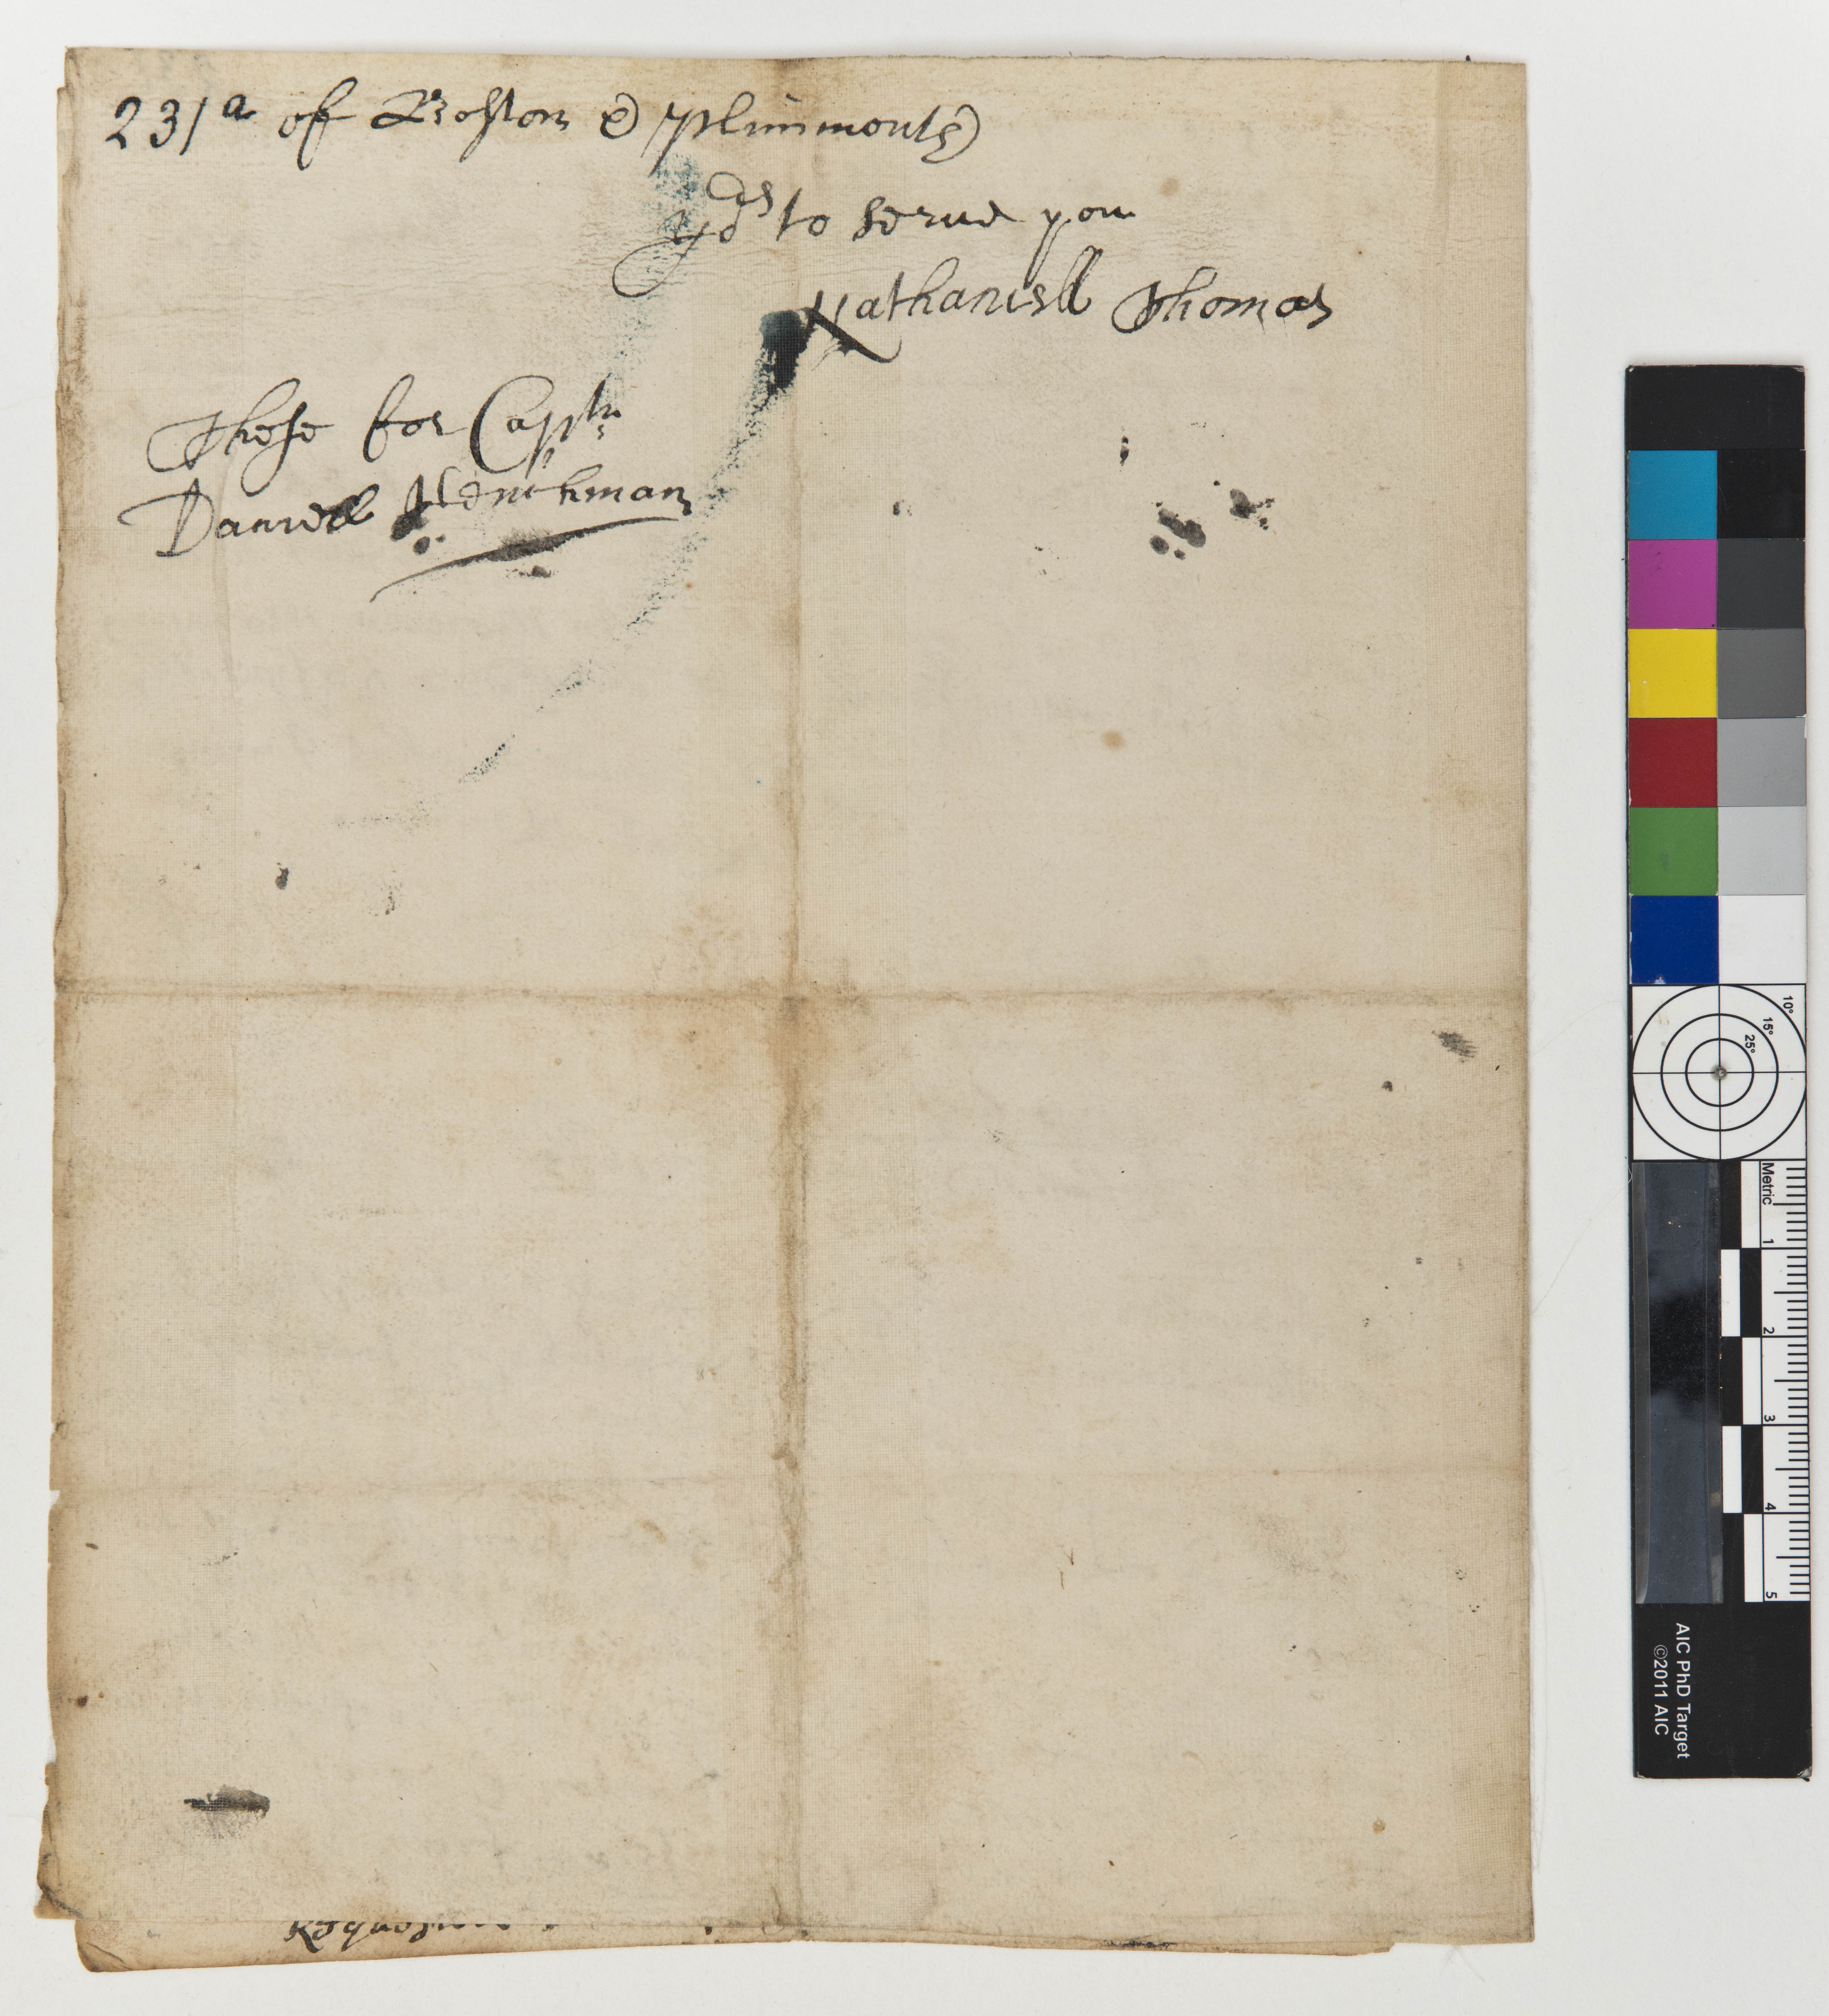 231a of Boston & Plimmouth
yors to serve you
Nathaniell Thomas
These for Captn
Daniell Henchman
10°
15°
25°
Metric
1
2
3
4
5
AIC PhD Target
©2011 AIC